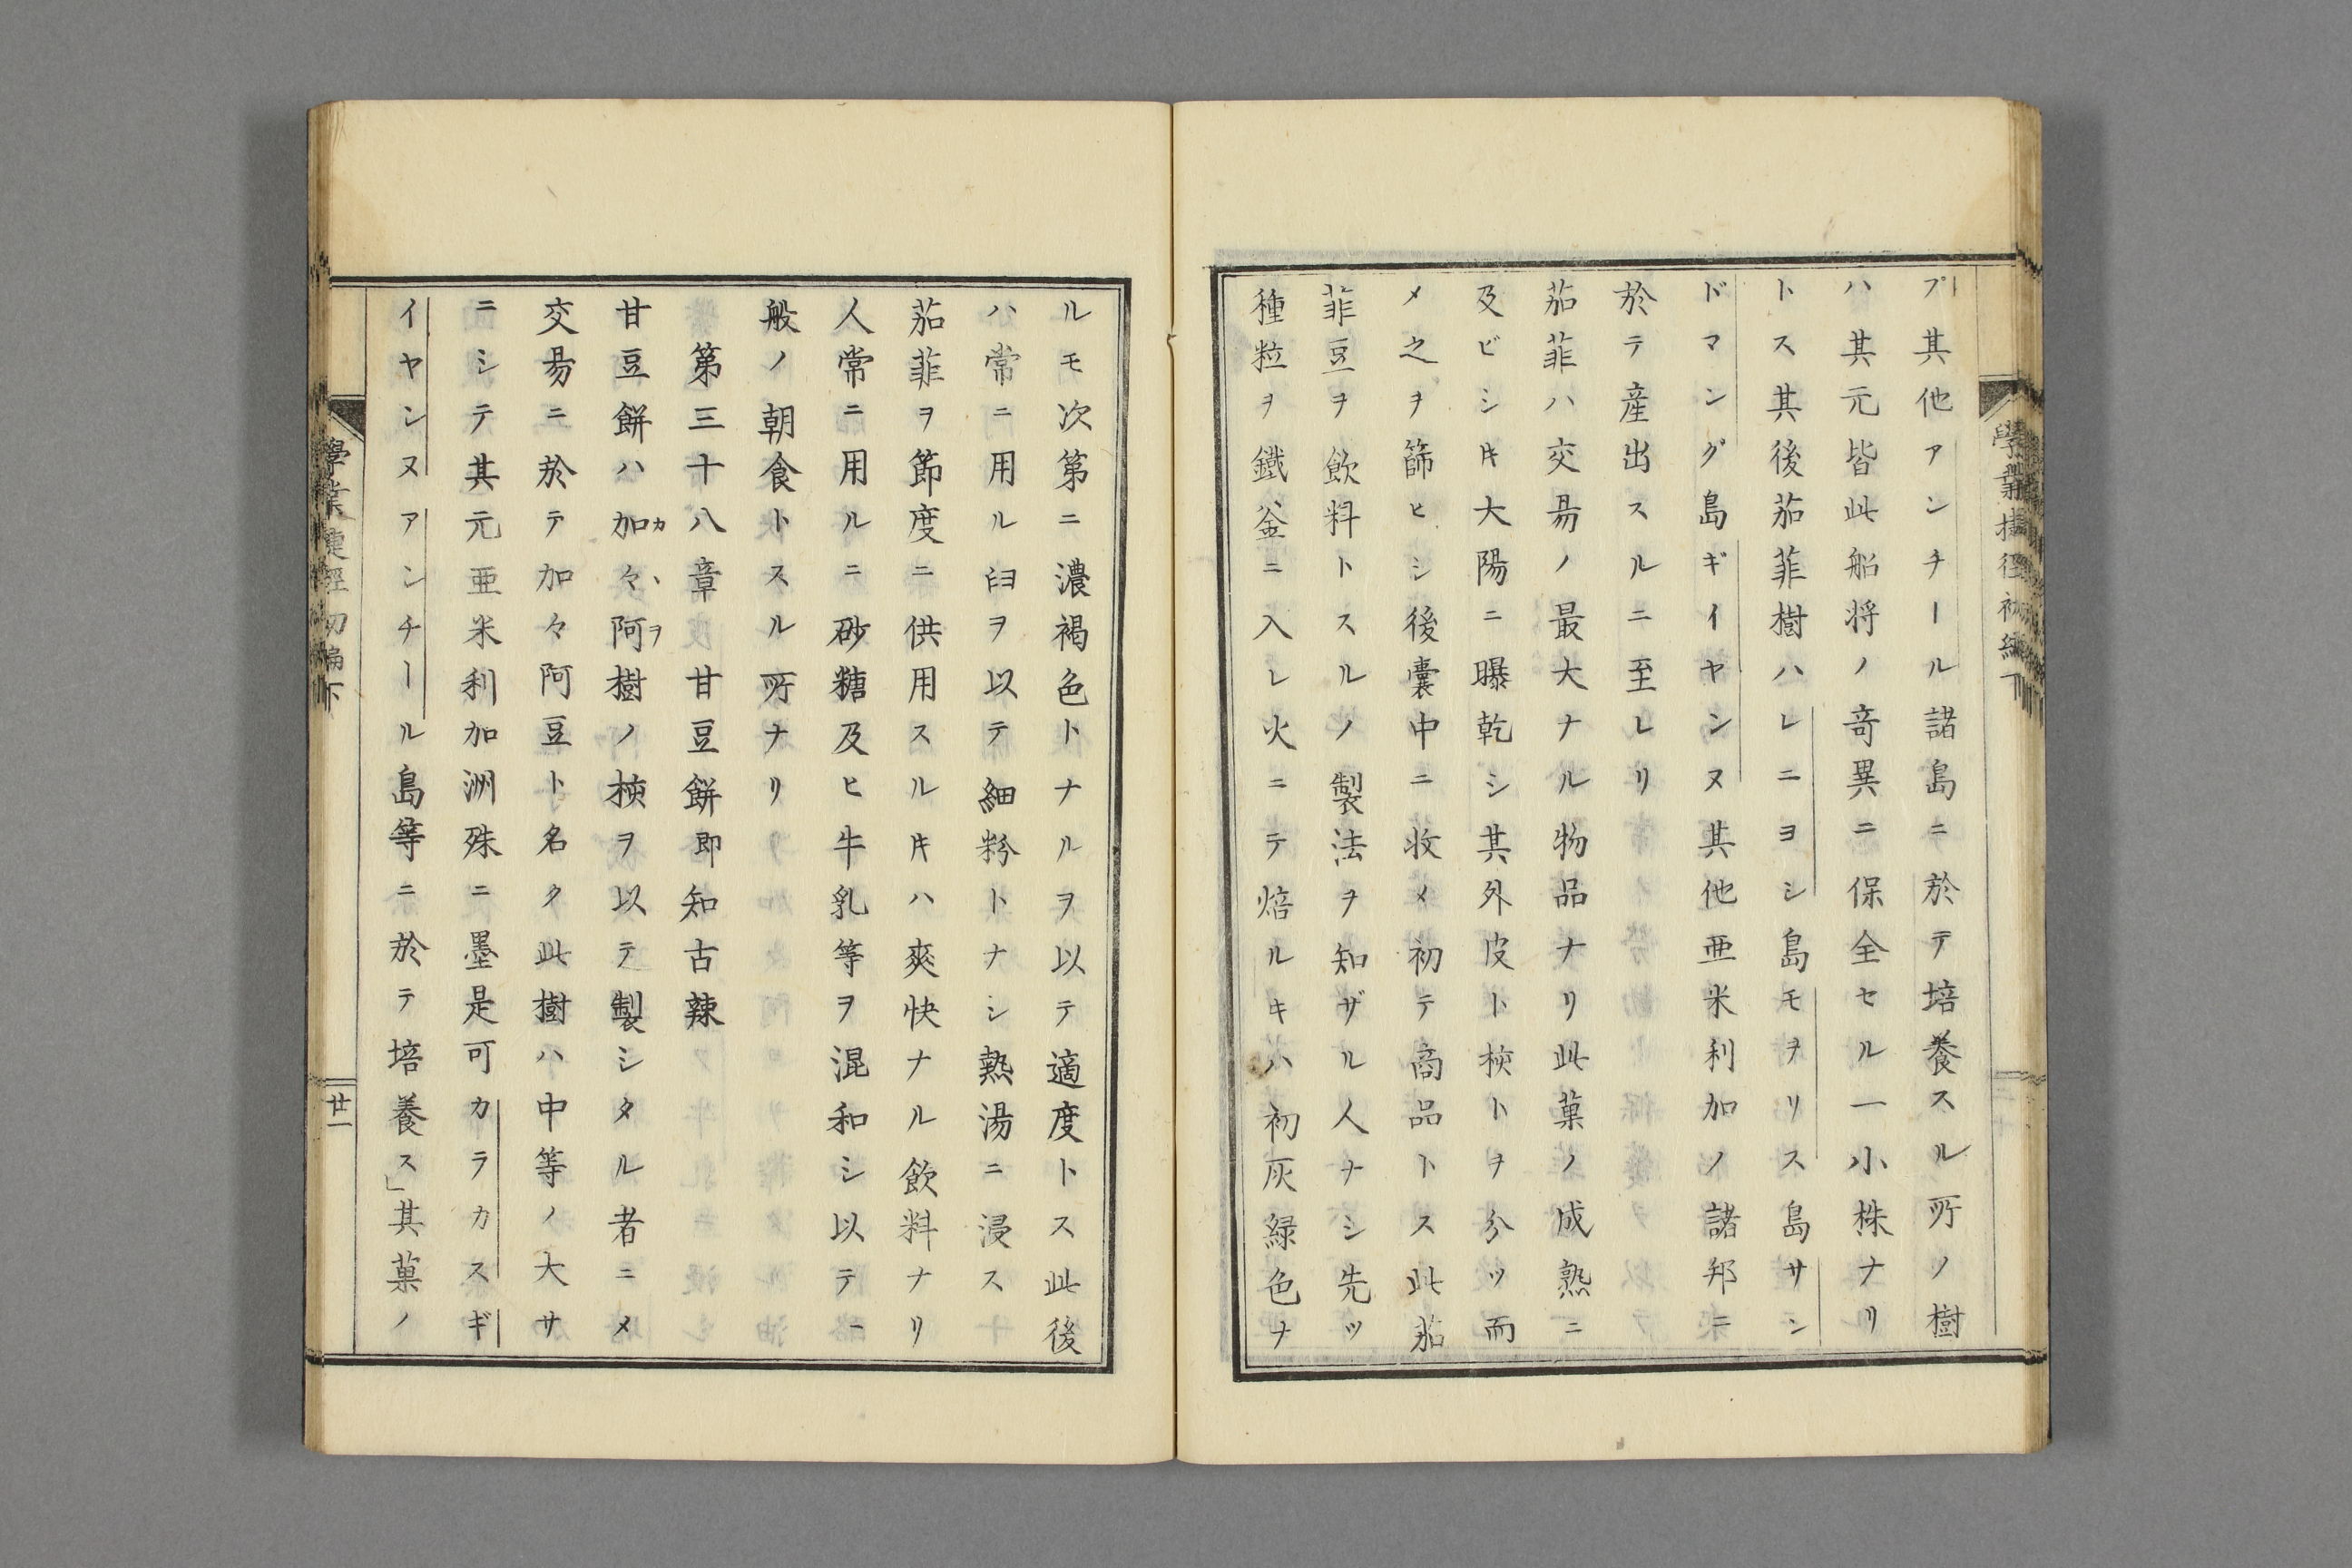 學業捷徑初編下
プ其他アンチール諸島ニ於テ培養スル所ノ樹
ハ其元皆此船将ノ奇異ニ保全セル一小株ナリ
トス其後茄菲樹ハレニヨシ島モヲリス島サシ
ドマング島ギイヤンヌ其他亜米利加ノ諸邦ニ
於テ産出スルニ至レリ
茄菲ハ交易ノ最大ナル物品ナリ此菓ノ成熟ニ
及ビシ𪜈大陽ニ曝乾シ其外皮ト核トヲ分ツ而
メ之ヲ篩ヒシ後嚢中ニ收メ初テ商品トス此茄
菲豆ヲ飲料トスルノ製法ヲ知ザル人ナシ先ツ
種粒ヲ鐵釜ニ入レ火ニテ焙ルキハ初灰緑色ナ
ルモ次第ニ濃褐色トナルヲ以テ適度トス此後
ハ常ニ用ル臼ヲ以テ細粉トナシ熱湯ニ浸ス
茄菲ヲ節度ニ供用スル𪜈ハ爽快ナル飲料ナリ
人常ニ用ルニ砂糖及ヒ牛乳等ヲ混和シ以テ一
般ノ朝食トスル所ナリ
第三十八章 甘豆餅即知古辣
甘豆餅ハ加々阿樹ノ核ヲ以テ製シタル者ニメ
カヽヲ
交易ニ於テ加々阿豆ト名ク此樹ハ中等ノ大サ
ニシテ其元亜米利加洲殊ニ墨是可カラカスギ
イヤンヌアンチール島等ニ於テ培養ス」其菓ノ
學業捷徑初編下
廿一